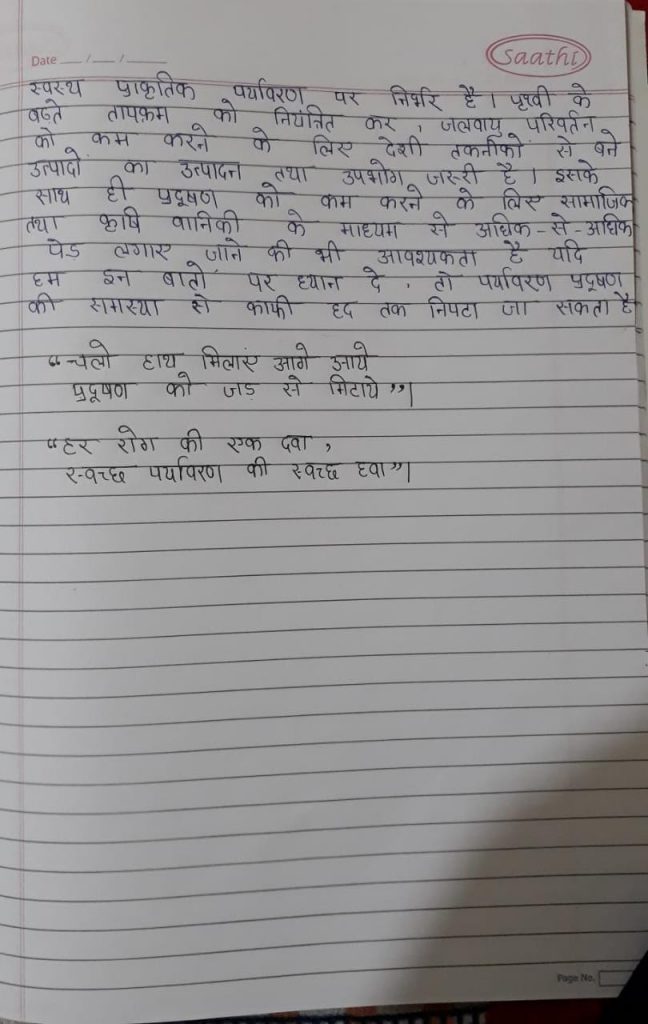 Date __/__/____
Saathi
स्वस्थ प्राकृतिक पर्यावरण पर निर्भर है। पृथ्वी के
बढते तापक्रम को नियंत्रित कर, जलवायु परिवर्तन
को कम करने के लिए देशी तकनीकों से बने
उत्पादों का उत्पादन तथा उपभोग जरुरी है। इसके
साथ ही प्रदूषण को कम करने के लिए सामाजिक
तथा कृषि वानिकी के माध्यम से अधिक-से-अधिक
पेड लगाए जाने की भी आवश्यकता है यदि
हम इन बातों पर ध्यान दे, तो पर्यावरण प्रदूषण
की समस्या से काफी हद तक निपटा जा सकता है
“चलो हाथ मिलाएं आगे आये
प्रदूषण को जड़ से मिटाये”।
“हर रोग की एक दवा,
स्वच्छ पर्यावरण की स्वच्छ हवा”।
Page No.